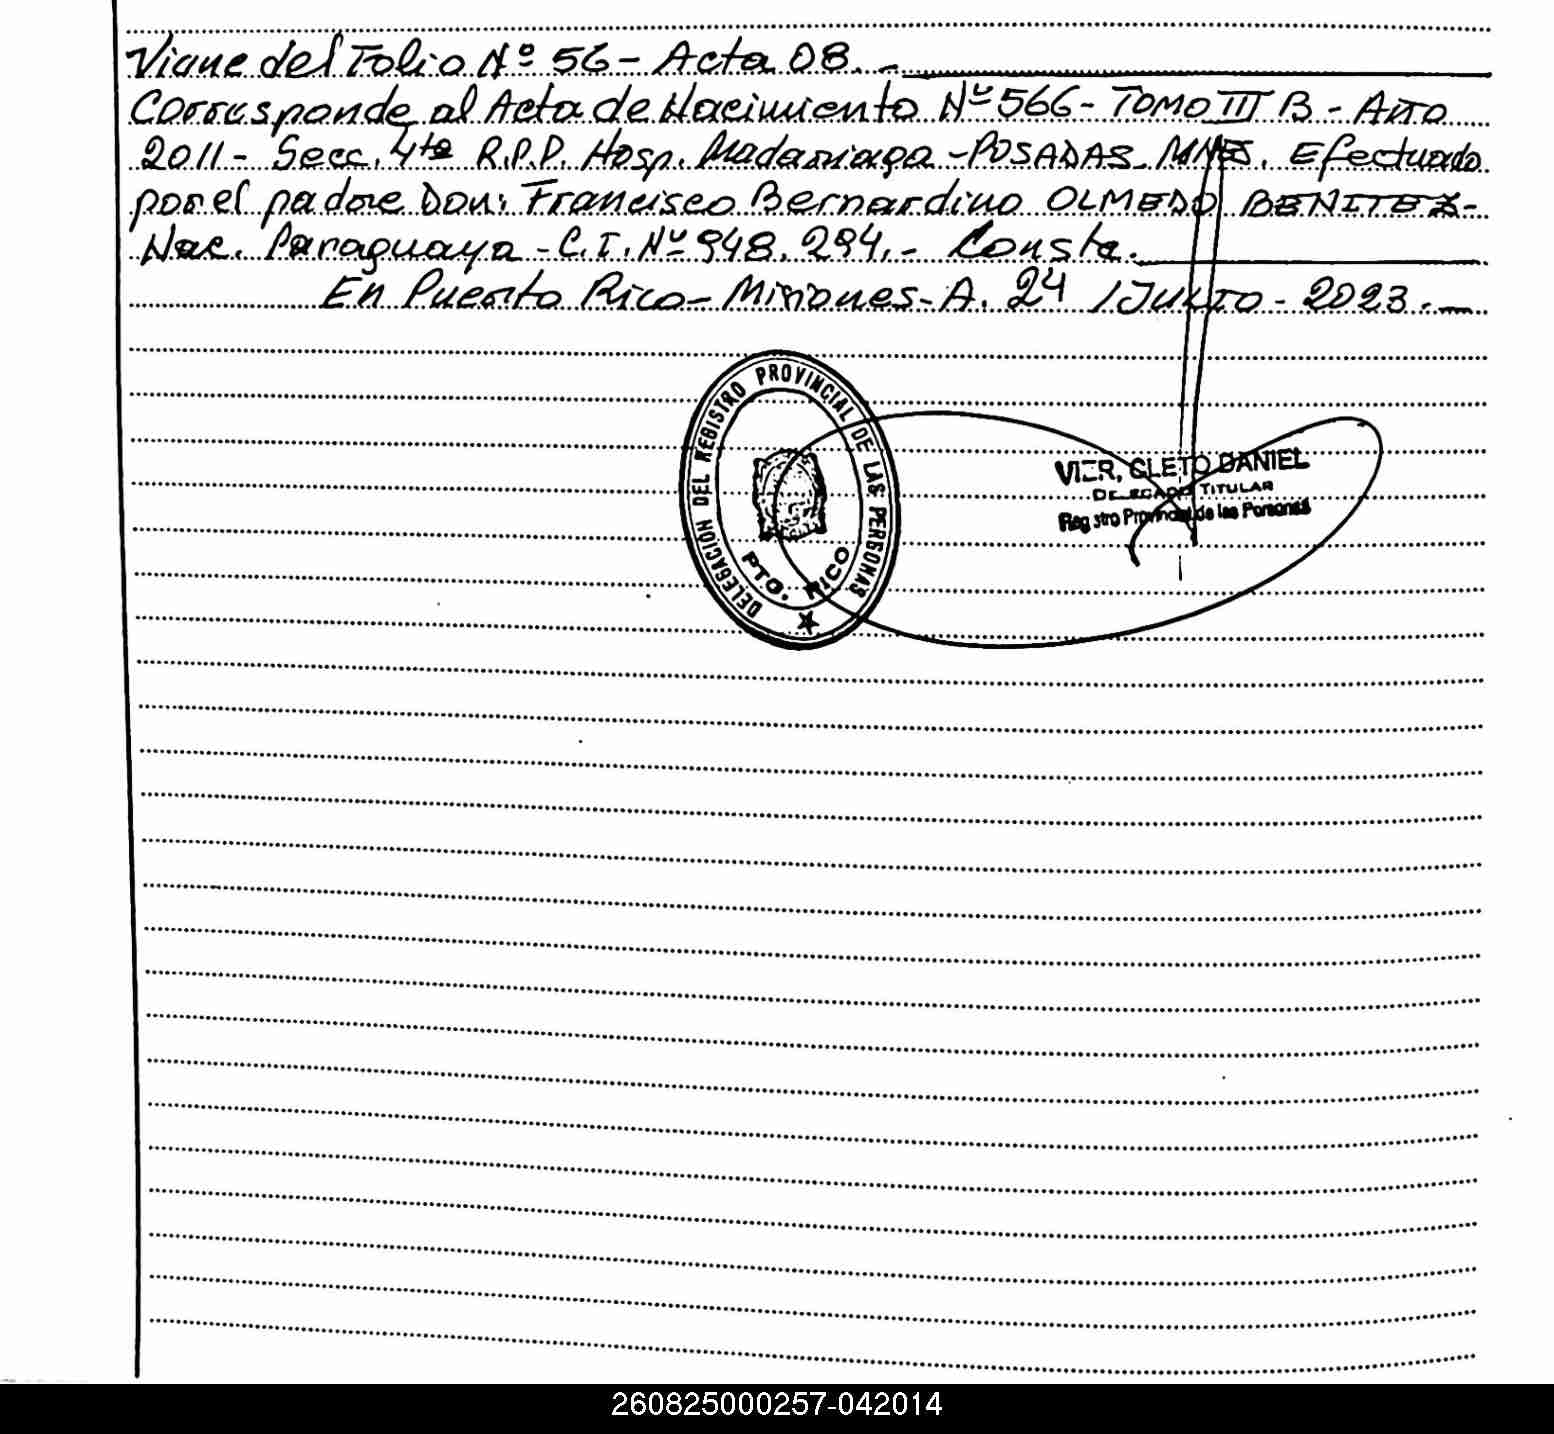 Viene del Folio Nº 56 - Acta 08. -
Corresponde al Acta de Nacimiento Nº 566 - TOMO III B - AÑO
2011 - Secc. 4ta R.P.P. Hosp. Madariaga - POSADAS - MNES. Efectuado
por el padre Don: Francisco Bernardino OLMEDO BENITEZ -
Nac. Paraguaya - C.I. Nº 948.294. - Conste.
En Puerto Rico - Misiones - A. 24 / JULIO - 2023. -
DELEGACION DEL REGISTRO PROVINCIAL DE LAS PERSONAS
PTO. RICO
VIER, CLETO DANIEL
DELEGADO TITULAR
Registro Provincial de las Personas
260825000257-042014